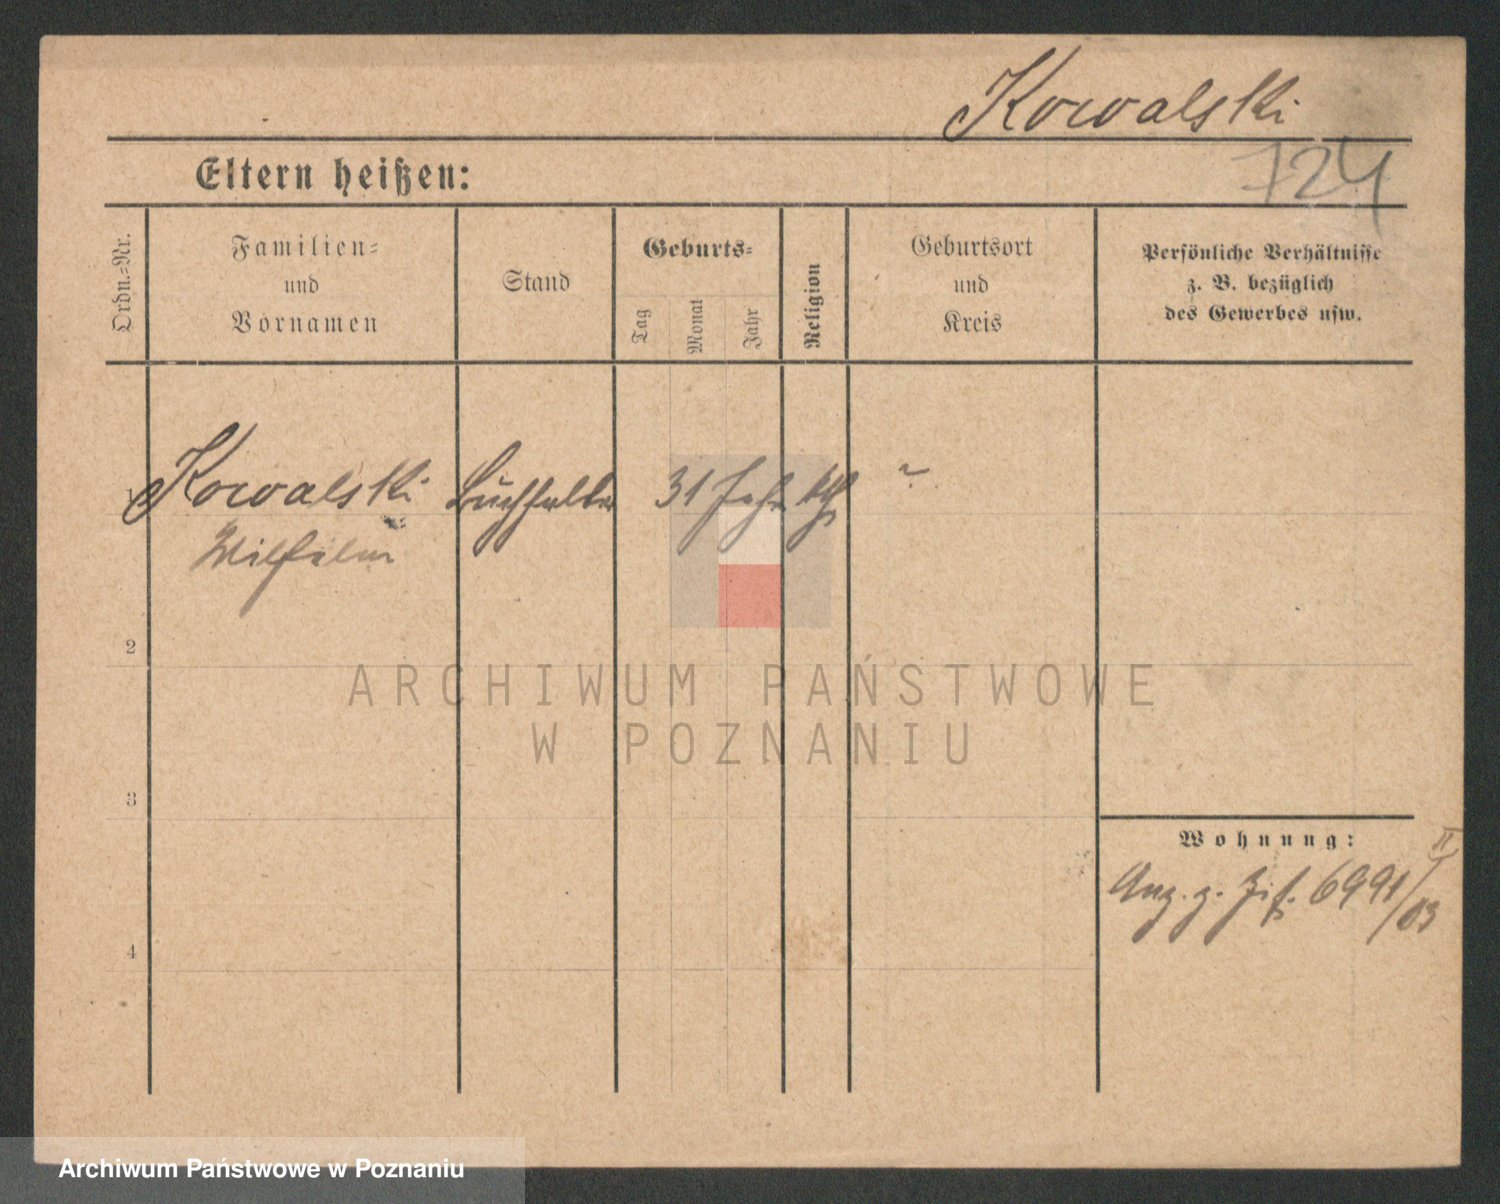 Kowalski
724
Eltern heißen:
Ordn.-Nr.
Familien-
und
Vornamen
Stand
Geburts-
Tag
Monat
Jahr
Religion
Geburtsort
und
Kreis
Persönliche Verhältnisse
z. B. bezüglich
des Gewerbes usw.
1 Kowalski Buchhalter 31 Jahr kth ?
Wilhelm
2
3
4
Wohnung:
II
Anz. z. 6991/03
ARCHIWUM PAŃSTWOWE
W POZNANIU
Archiwum Państwowe w Poznaniu